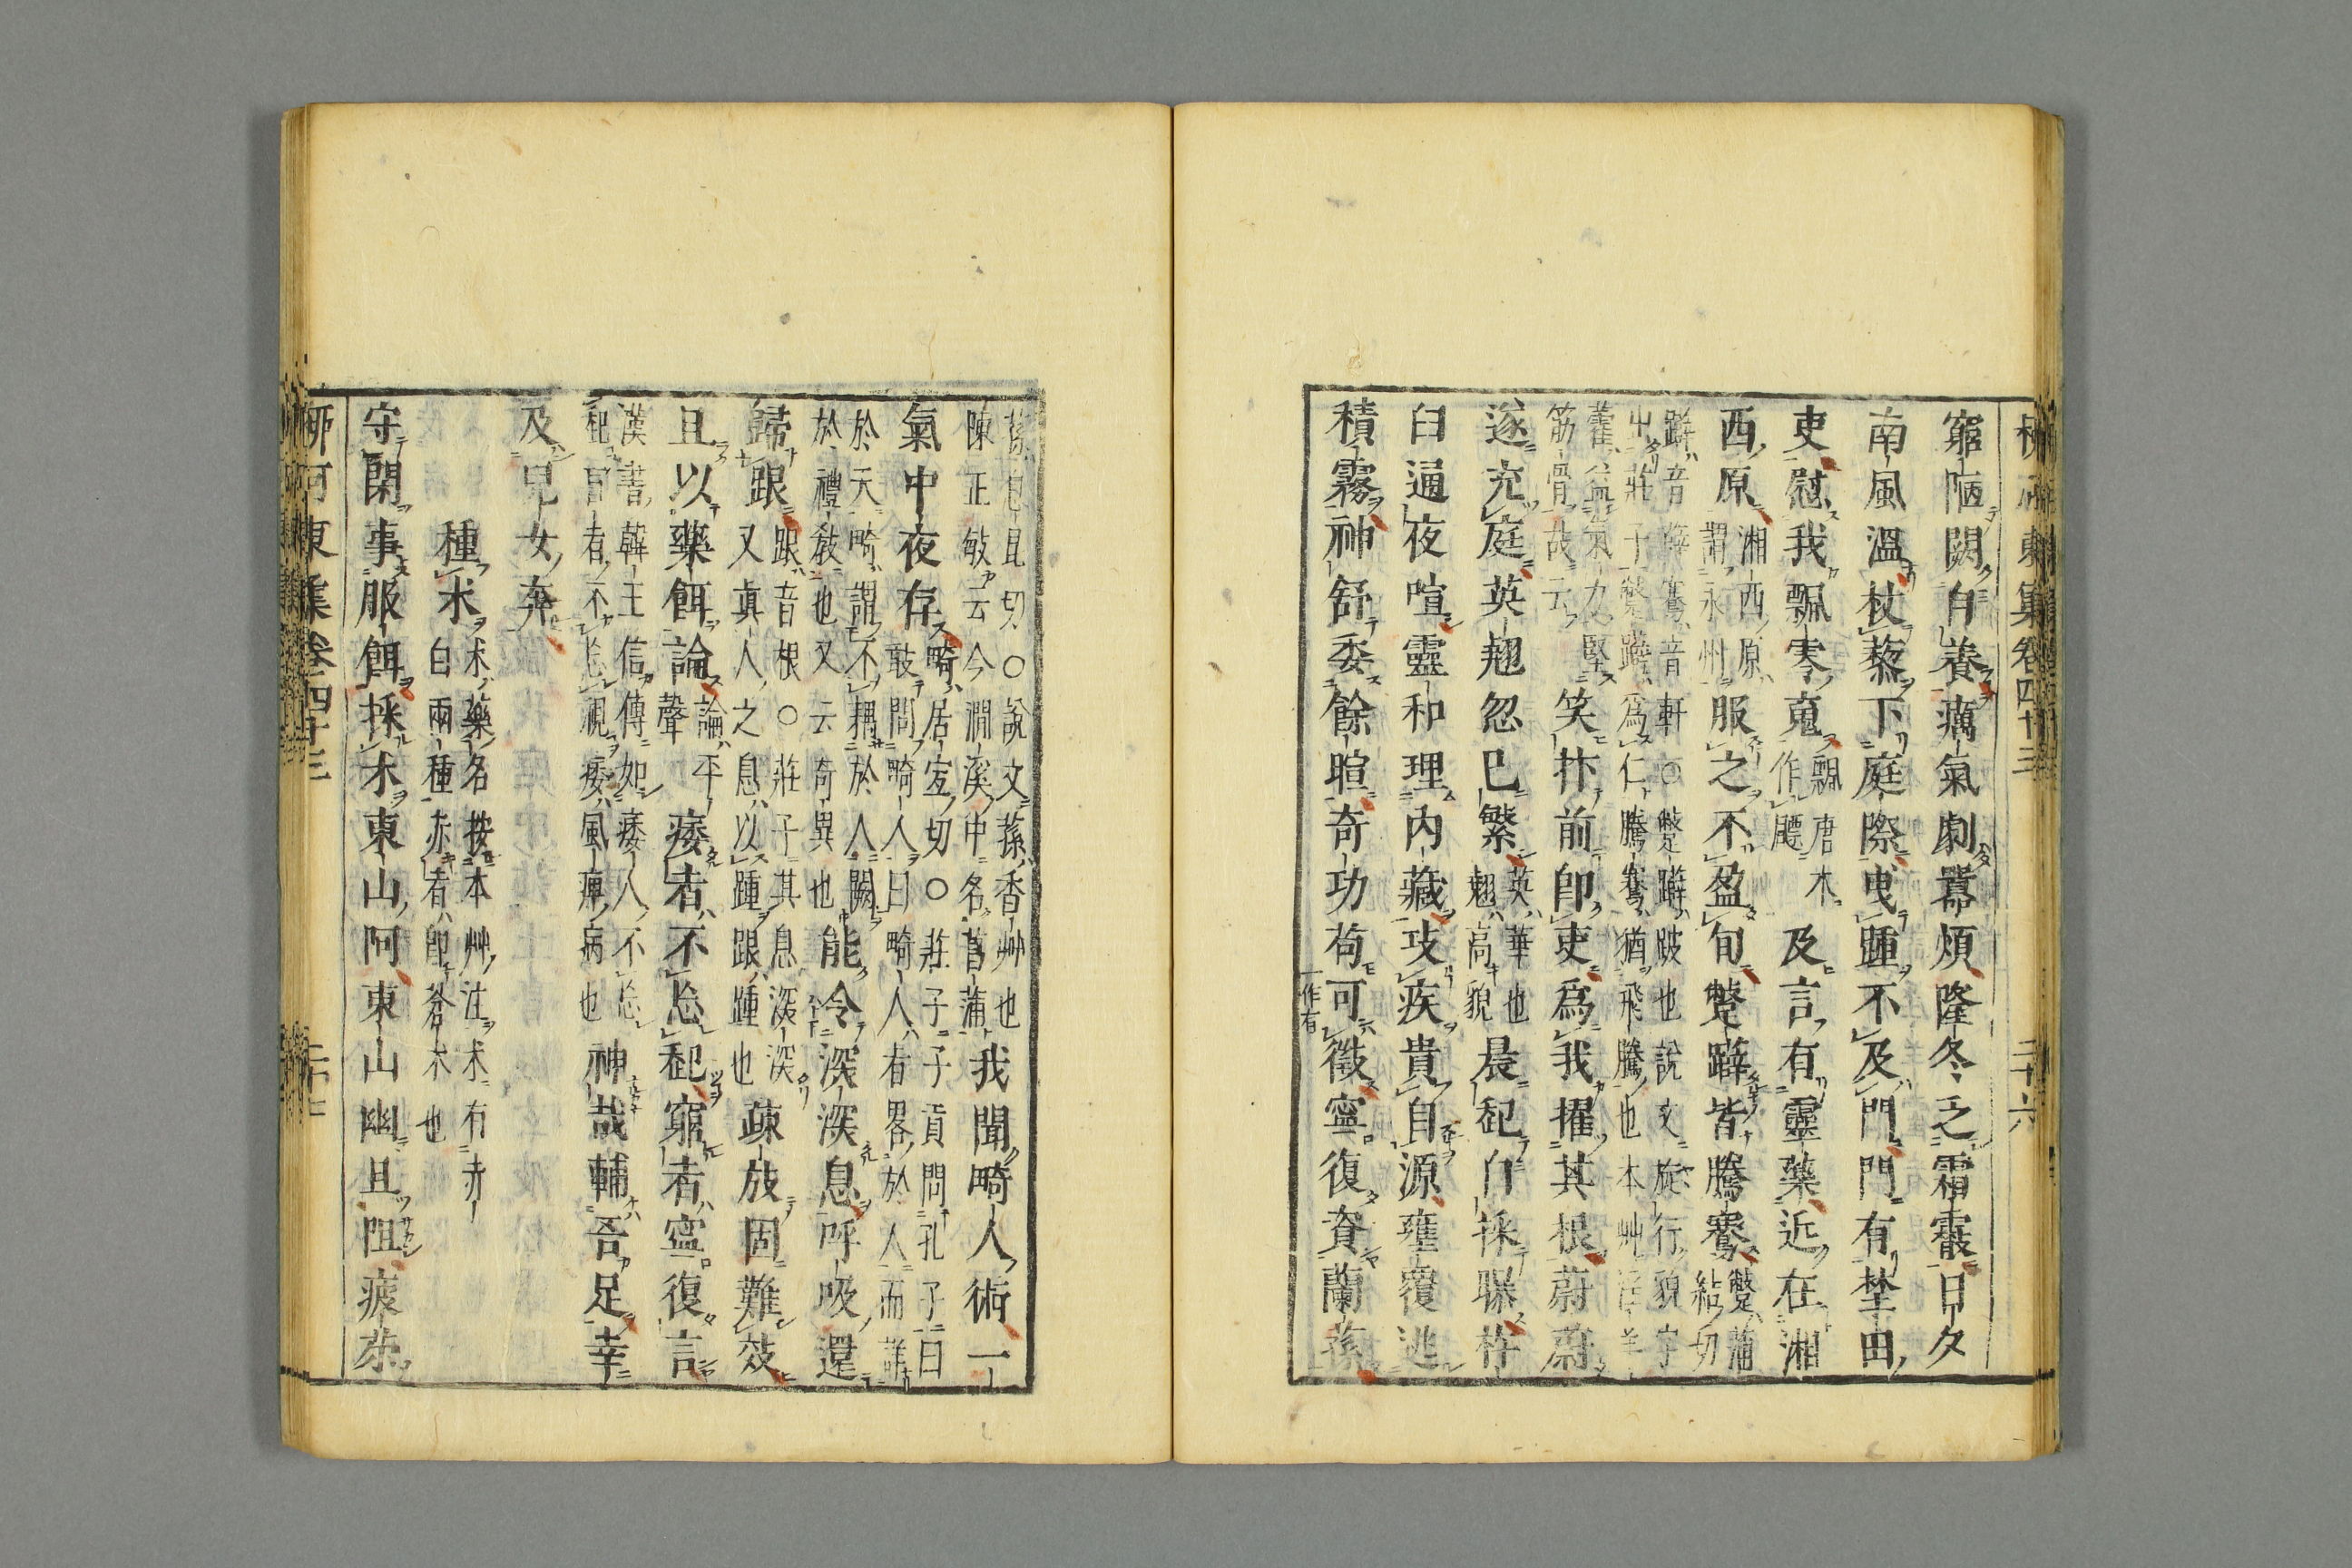 柳河東集卷四十三 二十六
窮陋闕自養癘氣劇嚚煩隆冬乏霜霰日夕
南風溫杖藜下庭際曳踵不及門門有野田
吏慰我飄零䰟飄唐本作飃及言有靈藥近在湘
西原湘西原謂永州服之不盈旬蹩躠皆騰騫蹩蒲結切
躠音薛騫音軒○蹩躠跛也說文旋行貌字
出莊子蹩躠爲仁騰騫猶飛騰也本艸淫羊
藿益氣力堅筋骨故云笑抃前卽吏爲我擢其根蔚蔚
遂充庭英翹忽已繁英華也翹高貌晨起自採曝杵
臼通夜喧靈和理內藏攻疾貴自源壅覆逃
積霧神舒委餘暄奇功苟一作有可徵寧復資蘭蓀
蓀息昆切○說文蓀香艸也
陳正敏云今澗溪中名菖蒲我聞畸人術一
氣中夜存畸居宜切○莊子子貢問孔子曰
敢問畸人曰畸人者畧於人而詳
於天畸謂不耦於人闕
於禮敎也又云奇異也能令深深息呼吸還
歸跟跟音根○莊子其息深深
又眞人之息以踵跟踵也疎放固難效
且以藥餌論論平聲痿者不忘起窮者寧復言
漢書韓王信傳如痿人不忘
起盲者不忘視痿風痺病也神哉輔吾足幸
及兒女奔
種朮朮藥名按本艸注朮有赤
白兩種赤者卽蒼朮也
守閑事服餌採朮東山阿東山幽且阻疲苶
柳河東集卷四十三 二十七